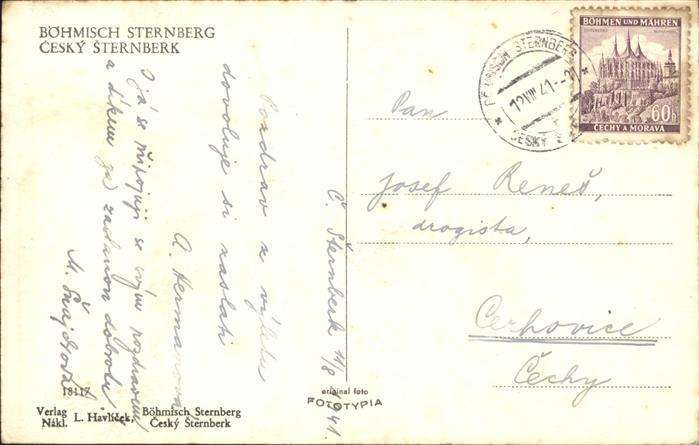 BÖHMISCH STERNBERG
ČESKÝ ŠTERNBERK
Pozdrav z výletu
dovoluje si zaslati
A. Hermanová
I já se připojuji se svým pozdravem
a díkem za zaslanou dobrotu
M. Švajdrová
Č. Šternberk 11/8 41
18117
Verlag
Nákl. L. Havlíček,
Böhmisch Sternberg
Český Šternberk
original foto
FOTOTYPIA
BÖHMISCH STERNBERG
12.VIII.41.--21
ČESKÝ
BÖHMEN UND MÄHREN
60h
ČECHY A MORAVA
Pan
Josef Reneš,
drogista,
Cerhovice
Čechy